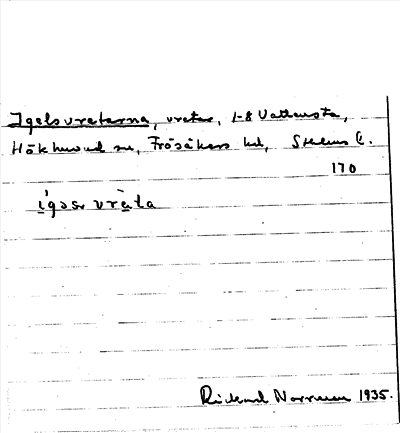 Igelsvretarna, vretar, 1-8 Vattensta,
Hökhuvud sn, Frösåkers hd, Sthlms l.
170
Rickard Norrman 1935.